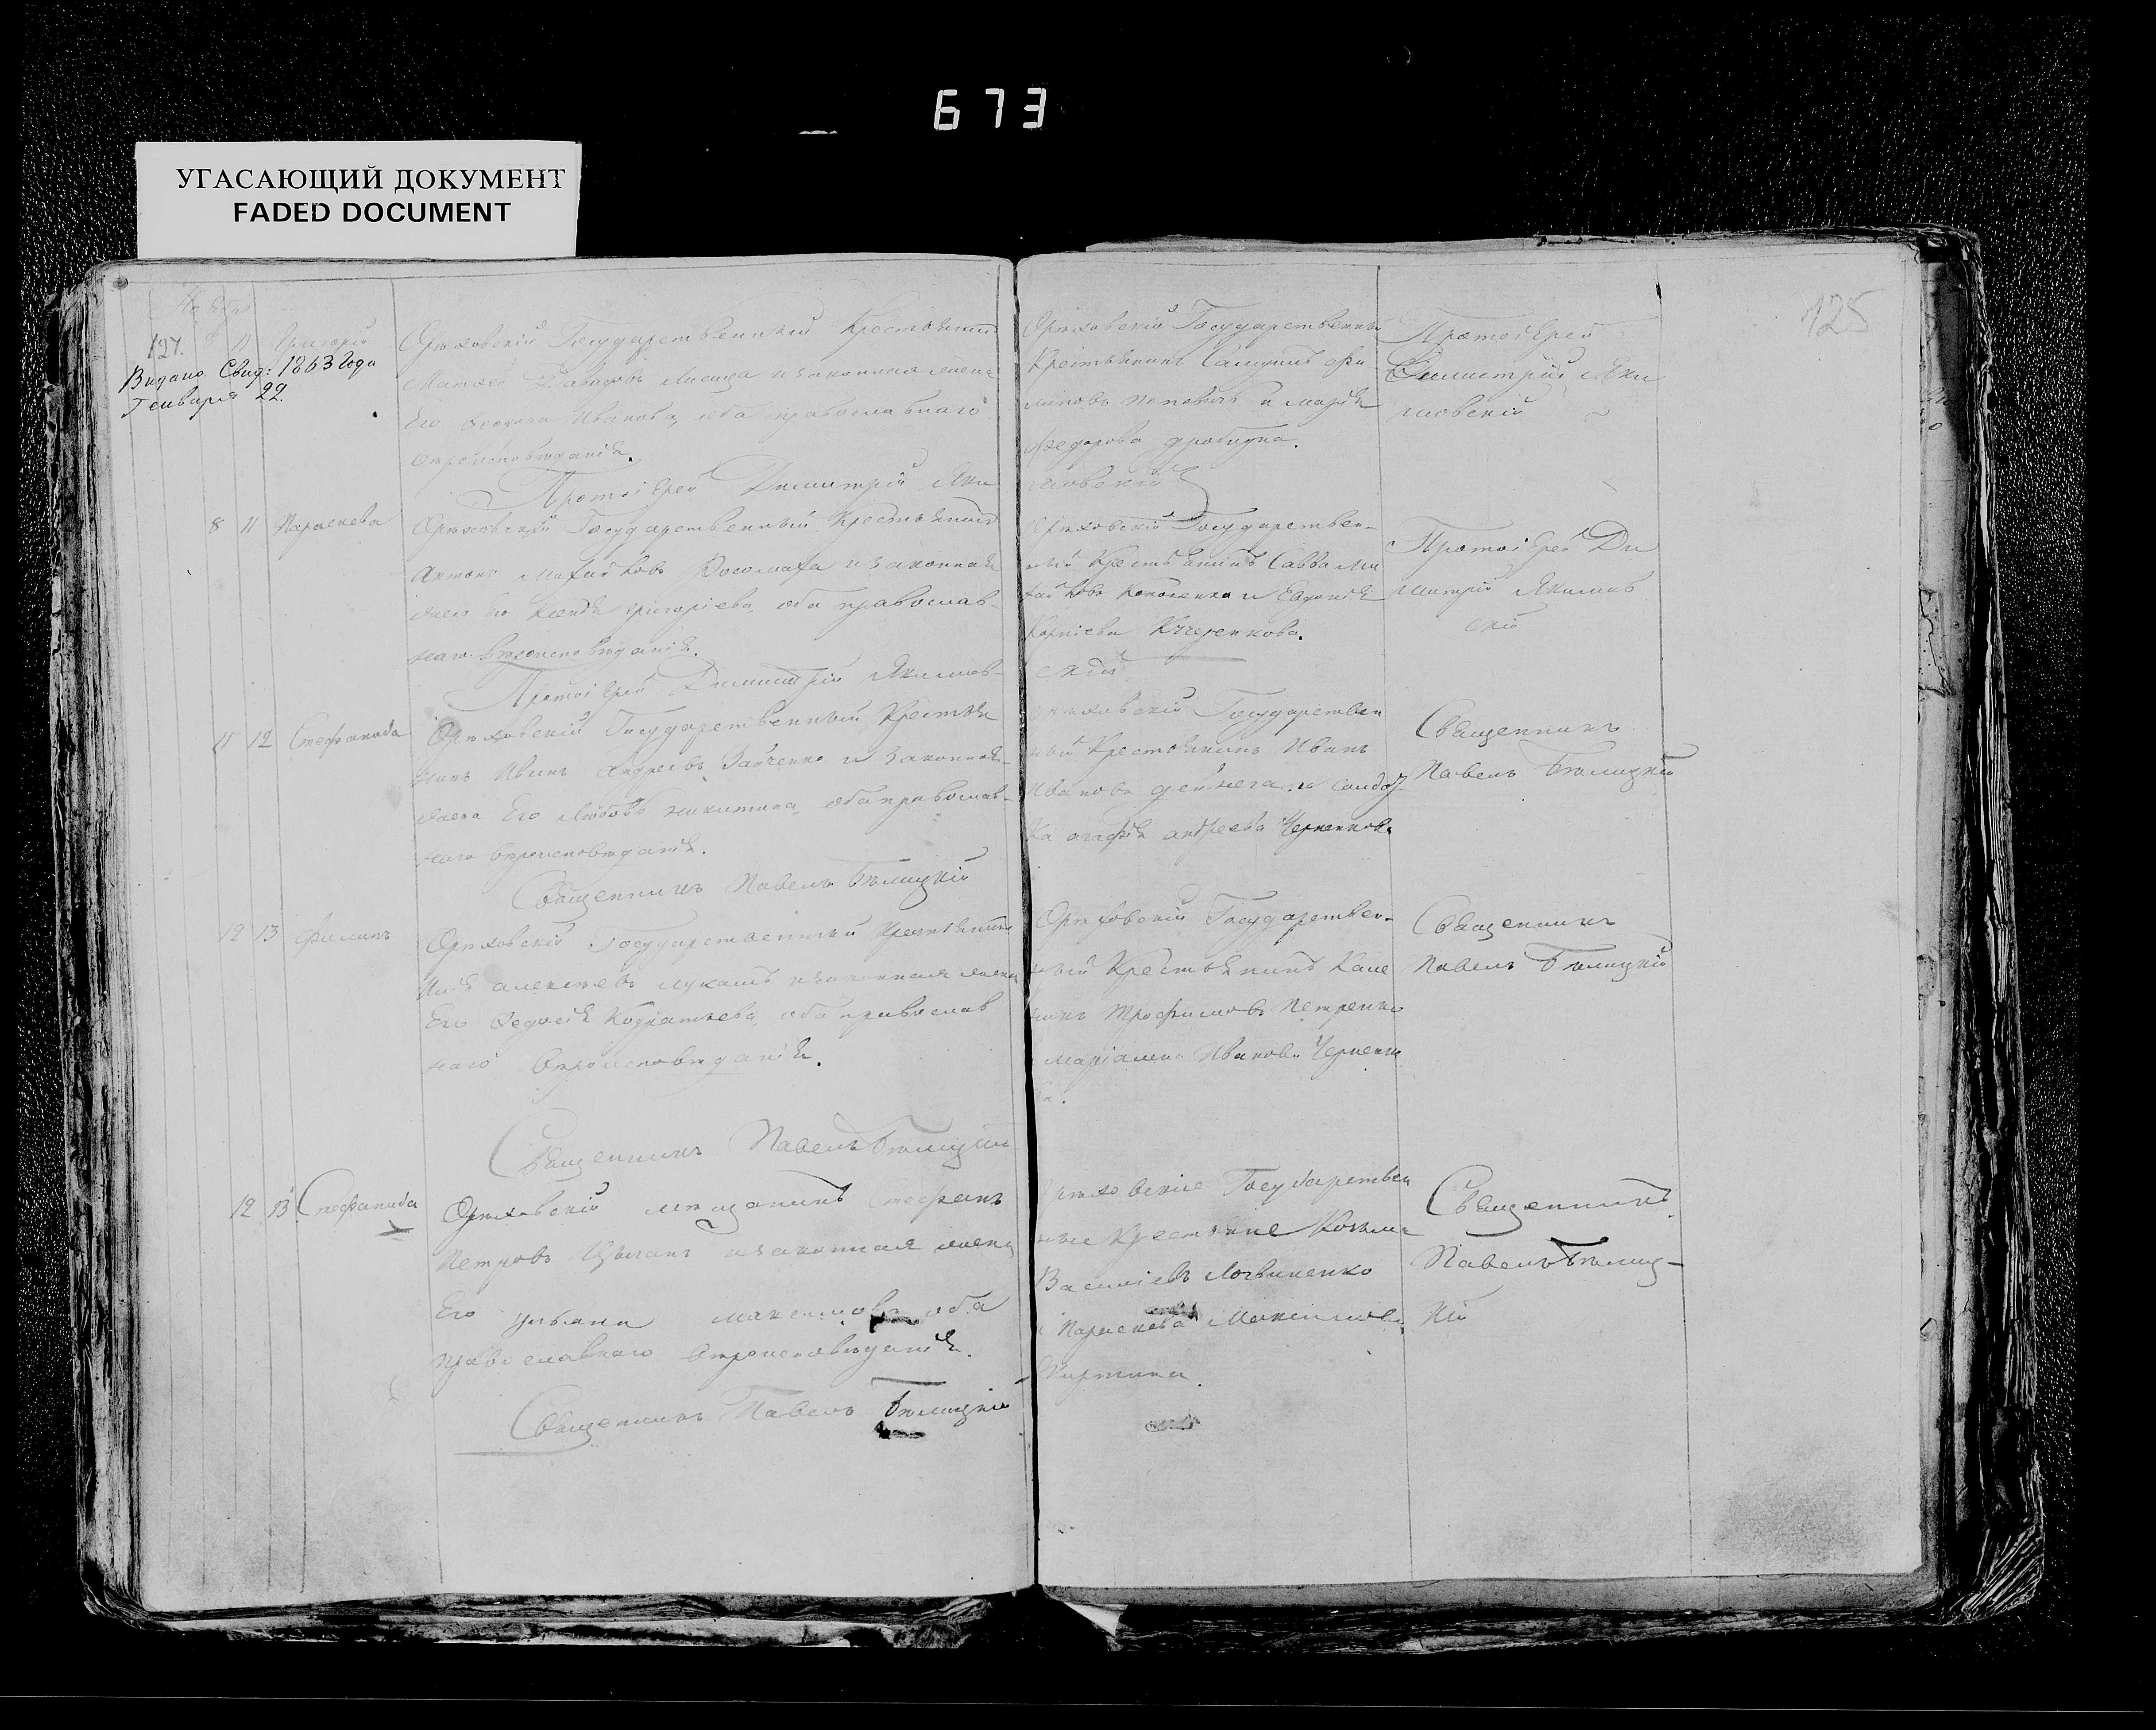 673
УГАСАЮЩИЙ ДОКУМЕНТ
FADED DOCUMENT
125
127. 8 11 Григорій
Видано Свид: 1863 года
Генваря 22.
Орѣховскій Государственный Крестьянинъ
Матѳей Давидовъ Лисица и законная жена
Его Ѳеодора Иванова, оба православнаго
вѣроисповѣданія.
Протоіерей Димитрій Яки
мовскій
Орѣховскій Государственный
Крестьянинъ Фи
липовъ Поповичъ и Марія
Федорова
Протоіерей
Димитрій Яки
мовскій
8 11 Параскева
Орѣховскій Государственный Крестьянинъ
Антонъ Михайловъ и законная
жена Его Ксенія Григоріева, оба православ-
наго вѣроисповѣданія.
Протоіерей Димитрій Якимов-
скій
Орѣховскій Государствен-
ный Крестьянинъ Савва Ми
хайловъ Кононенко и Евдокія
Корніева Кучеренкова.
Протоіерей Ди
митрій Якимов
скій
11 12 Стефанида
Орѣховскій Государственный Крестья
нинъ Иванъ Андреевъ Зайченко и законная
жена Его Любовь Никитина, оба православ-
наго вѣроисповѣданія.
Священникъ Павелъ Бѣлицкій
Орѣховскій Государствен
ный Крестьянинъ Иванъ
Ивановъ Дейнега и солдат
ка Агафія Андреева Черненкова
Священникъ
Павелъ Бѣлицкій
12 13 Филипъ
Орѣховскій Государственный Крестьянинъ
Илія Алексѣевъ Лукашъ и законная жена
Его Ѳедосія Кодратьева, оба православ
наго вѣроисповѣданія.
Священникъ Павелъ Бѣлицкій
Орѣховскій Государствен-
ный Крестьянинъ
Трофимовъ Петренко
Маріамна Иванова Черненко
ва.
Священникъ
Павелъ Бѣлицкій
12 13 Стефанида
Орѣховскій мѣщанинъ Стефанъ
Петровъ Цыганъ и законная жена
Его Ульяна Максимова, оба
православнаго вѣроисповѣданія.
Священникъ Павелъ Бѣлицкій
Орѣховскіе Государствен
ные Крестьяне Козьма
Василіевъ Логвиненко
и Параскева Максимова
Священникъ
Павелъ Бѣлиц-
кій